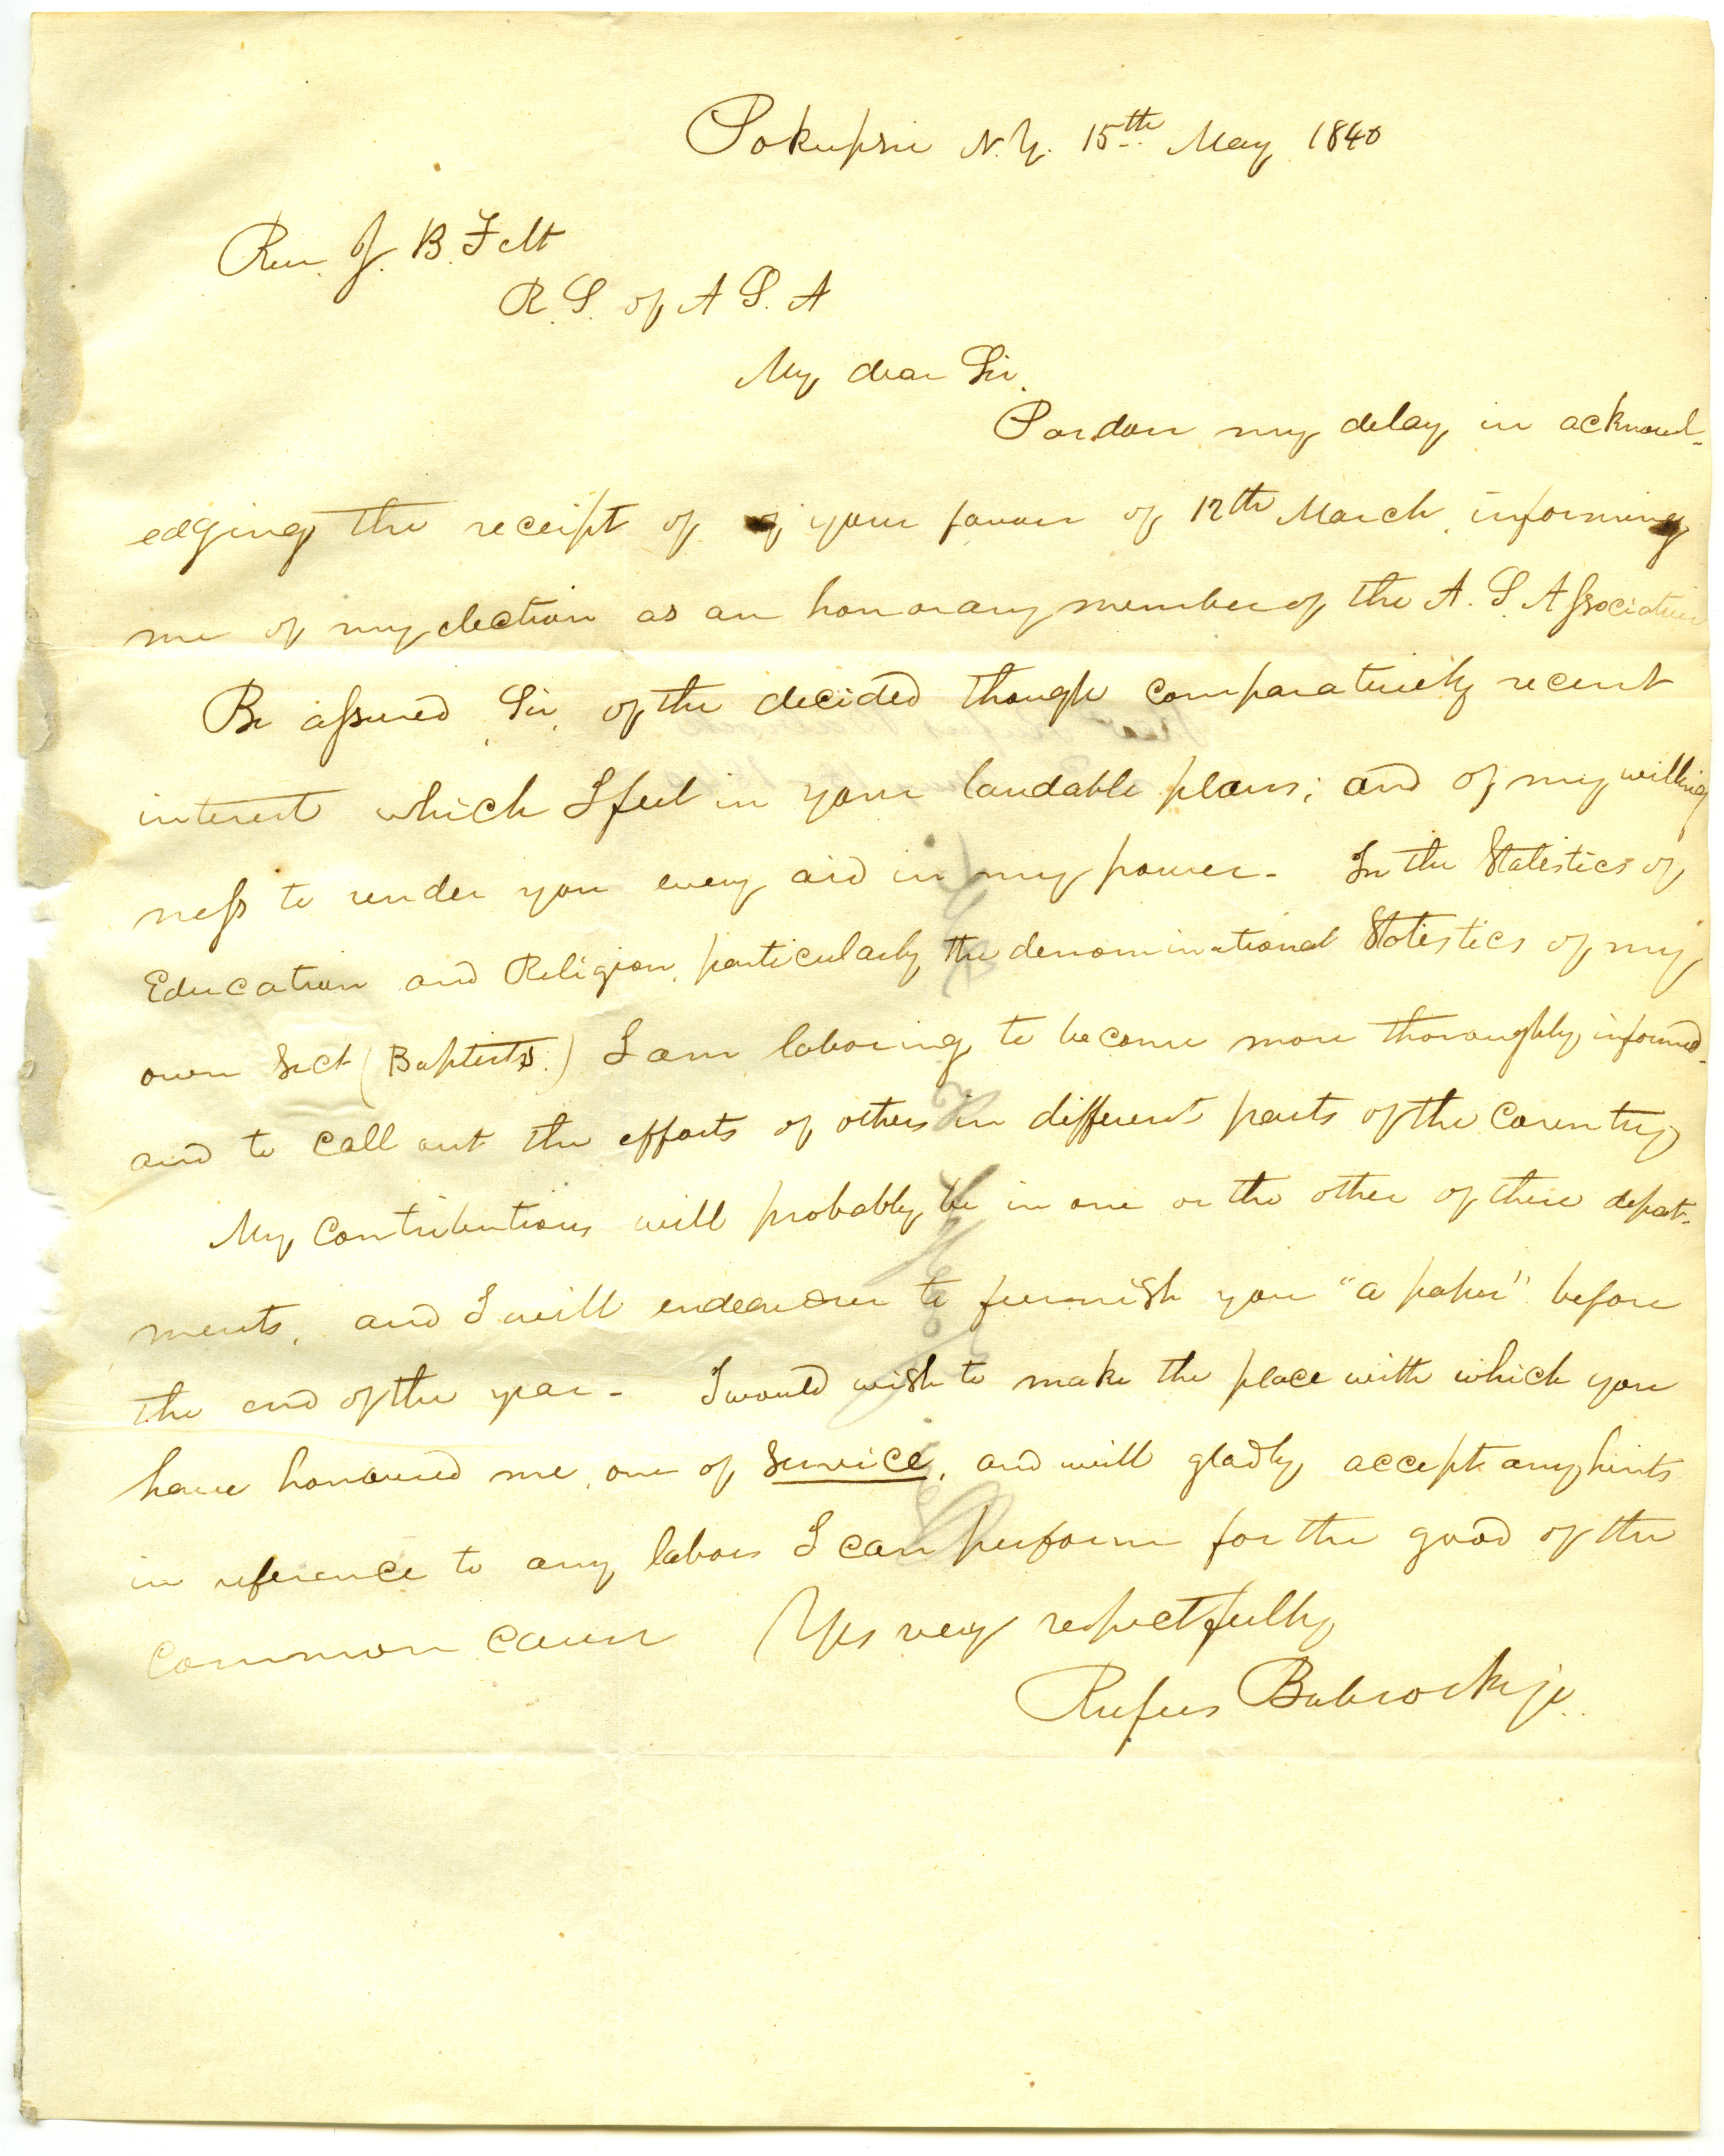 Pokepsie N.Y. 15th May 1840
Rev. J. B. Felt
R. S. of A S. A
My dear Sir.
Pardon my delay in acknowl-
edging the receipt of of your favour of 12th March informing
me of my election as an honorary member of the A. S. Association
Be assured Sir, of the decided though comparatively recent
interest which I feel in your laudable plans; and of my willing
ness to render you every aid in my power - In the Statistics of
Education and Religion, particularly the denominational Statistics of my
own Sect (Baptists.) I am laboring to become more thoroughly informed -
and to call out the efforts of others in different parts of the country
My contributions will probably be in one or the other of these depart-
ments, and I will endeavour to furnish you "a paper" before
the end of the year - I would wish to make the place with which you
have honoured me, one of service, and will gladly accept any hints
in reference to any labors I can perform for the good of the
common cause Yrs very respectfully
Rufus Babcock jr.